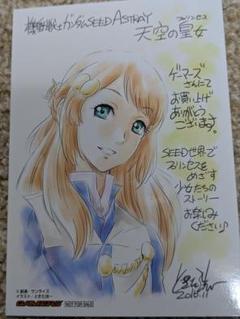 機動戦士ガンダムSEED ASTRAY
プリンセス
天空の皇女
ゲーマーズ
さんにて
お買い上げ
ありがとう
ございます。
SEED世界で
プリンセスを
めざす
少女たちの
ストーリー
お楽しみ
ください♪
2016.11
© 創通・サンライズ
イラスト:ときた洸一
GAMERS NOT FOR SALE